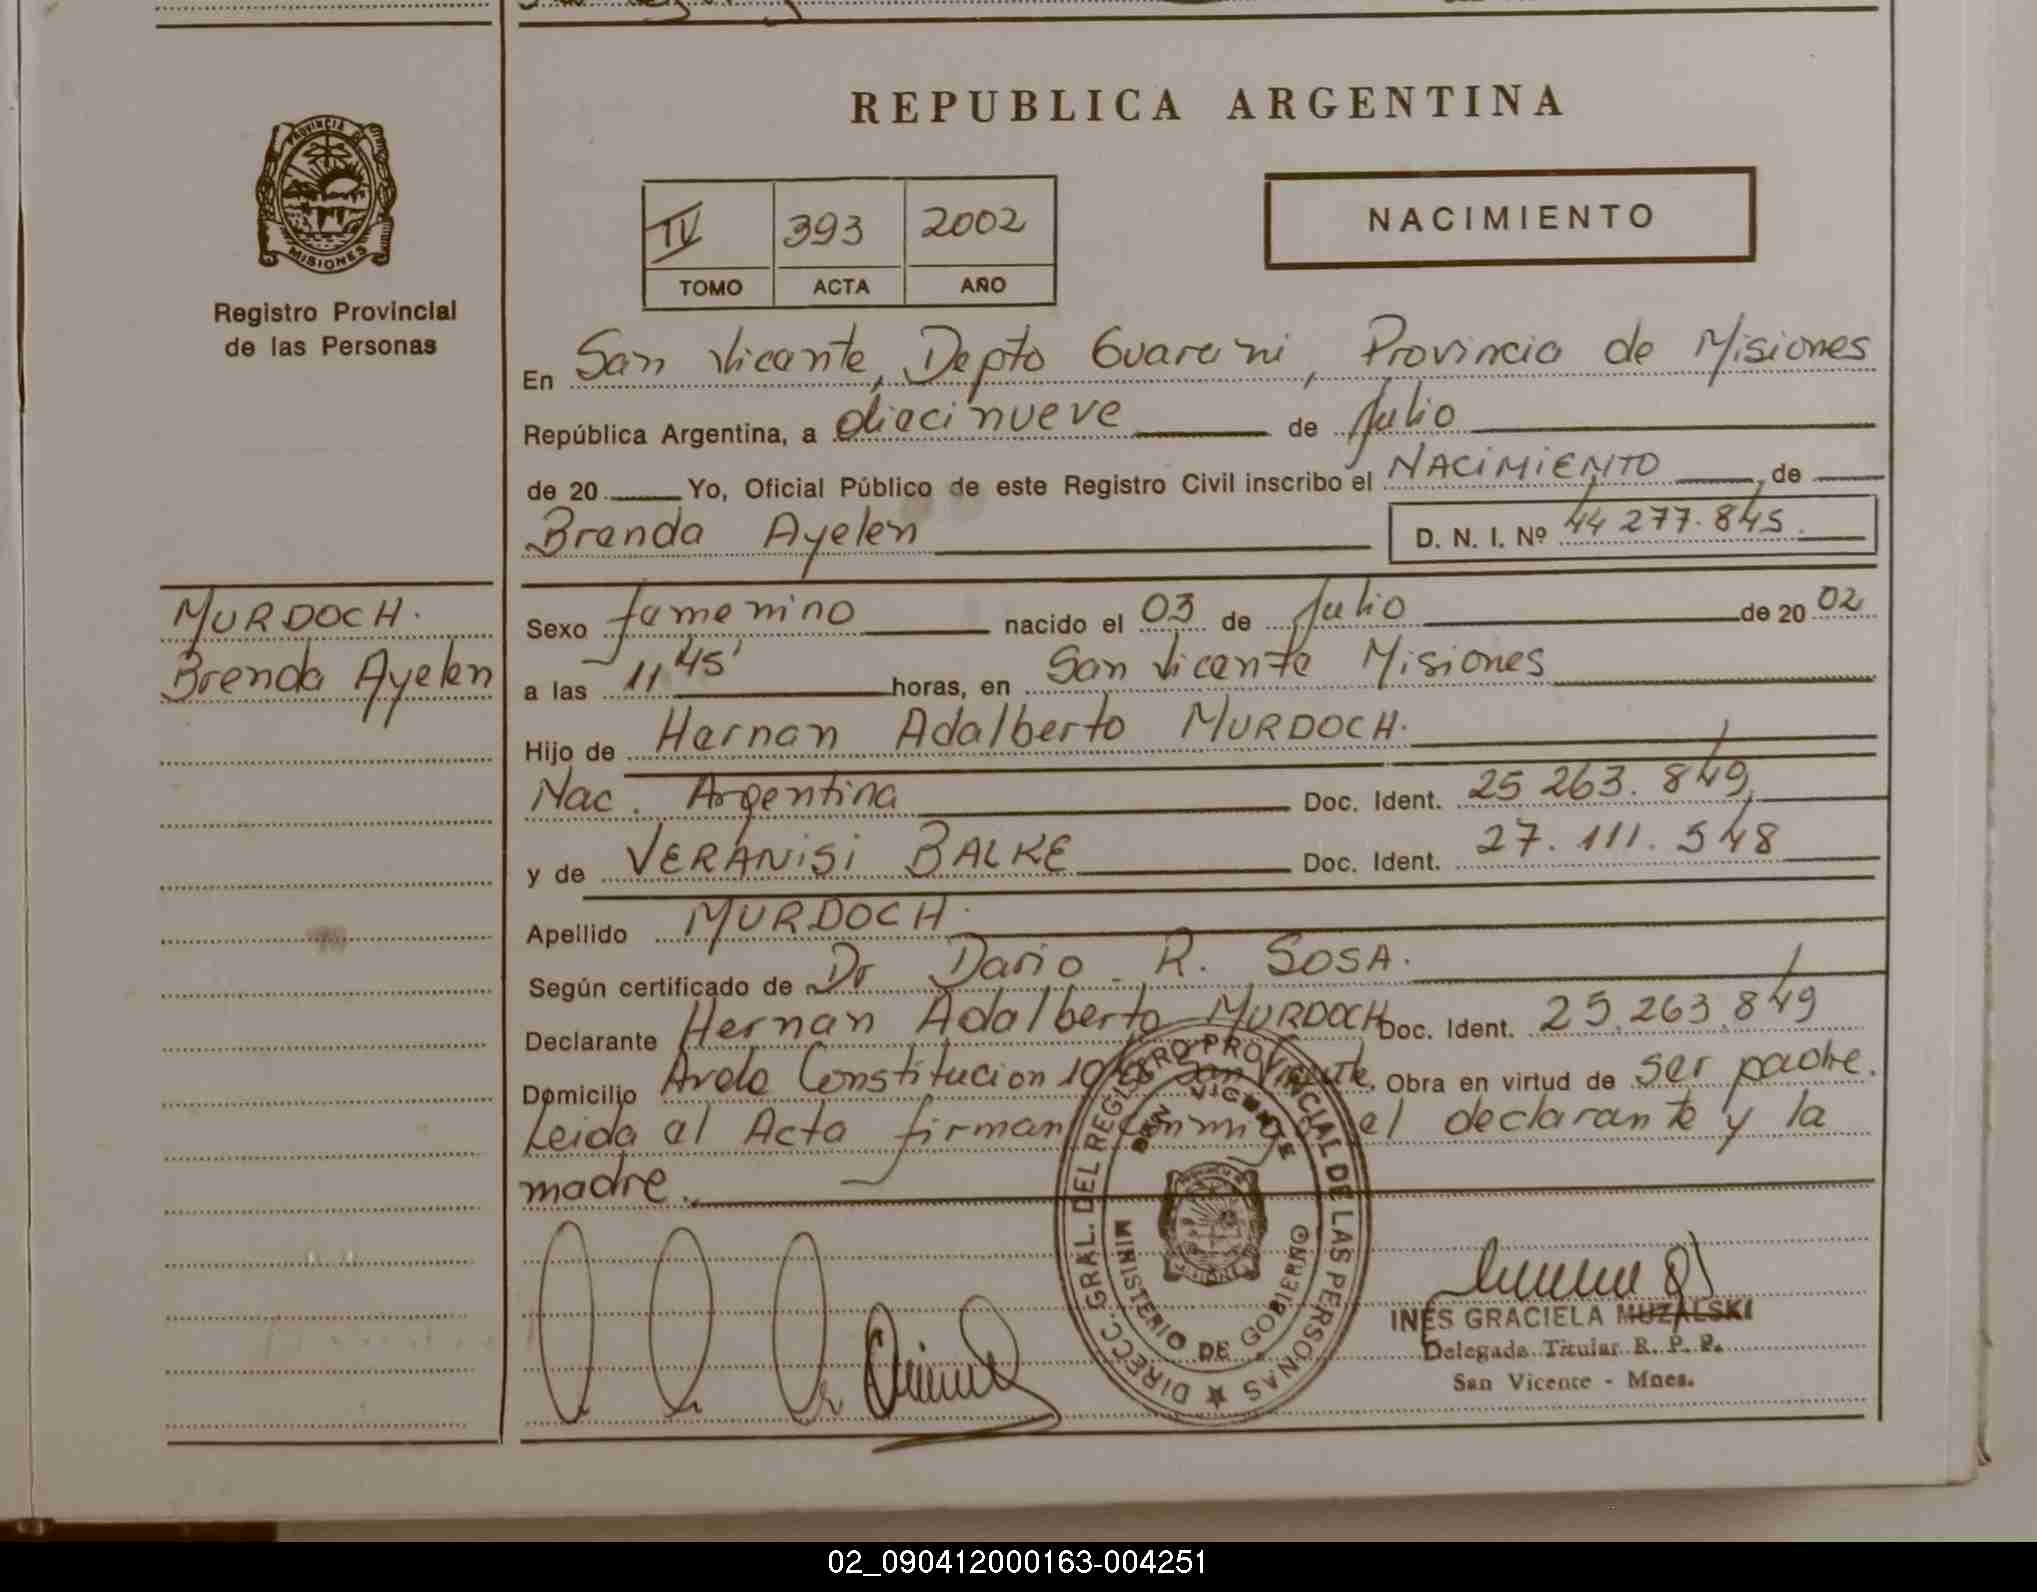 REPUBLICA ARGENTINA
PROVINCIA DE
MISIONES
Registro Provincial
de las Personas
IV 393 2002
TOMO ACTA AÑO
NACIMIENTO
En San Vicente, Depto Guarani, Provincia de Misiones
República Argentina, a diecinueve de Julio
de 20 Yo, Oficial Público de este Registro Civil inscribo el NACIMIENTO, de
Brenda Ayelen D. N. I. Nº 44 277.845
MURDOCH.
Brenda Ayelen
Sexo femenino nacido el 03 de Julio de 20 02
a las 11,45' horas, en San Vicente Misiones
Hijo de Hernan Adalberto MURDOCH.
Nac. Argentina Doc. Ident. 25 263.849,
y de VERANISI BALKE Doc. Ident. 27.111.548
Apellido MURDOCH.
Según certificado de Dr Dario R. SOSA.
Declarante Hernan Adalberto MURDOCH Doc. Ident. 25.263.849
Domicilio Avda Constitucion San Vicente, Obra en virtud de ser padre.
Leida el Acta firman conmigo el declarante y la
madre.
DIRECC. GRAL. DEL REGISTRO PROVINCIAL DE LAS PERSONAS
SAN VICENTE
MINISTERIO DE GOBIERNO
MISIONES
INES GRACIELA MUZALSKI
Delegada Titular R. P. P.
San Vicente - Mnes.
02_090412000163-004251